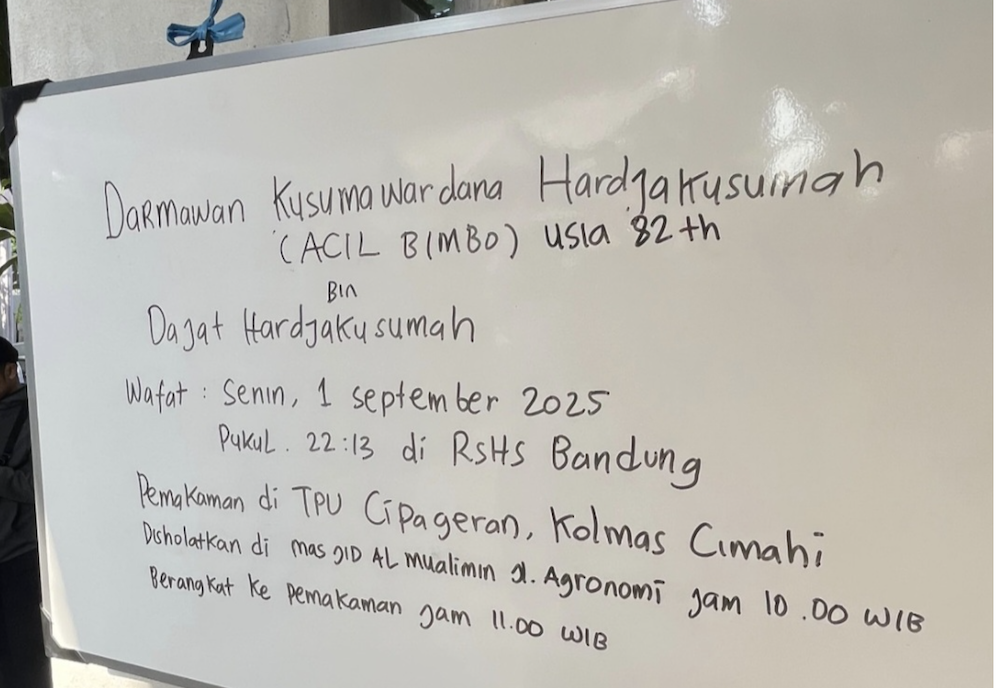 Darmawan Kusumawardana Hardjakusumah
(ACIL BIMBO) usia 82th
Bin
Dajat Hardjakusumah
Wafat : Senin, 1 september 2025
Pukul. 22:13 di RSHS Bandung
Pemakaman di TPU Cipageran, Kolmas Cimahi
Disholatkan di masjid AL Mualimin Jl. Agronomi jam 10.00 WIB
Berangkat ke pemakaman jam 11.00 WIB